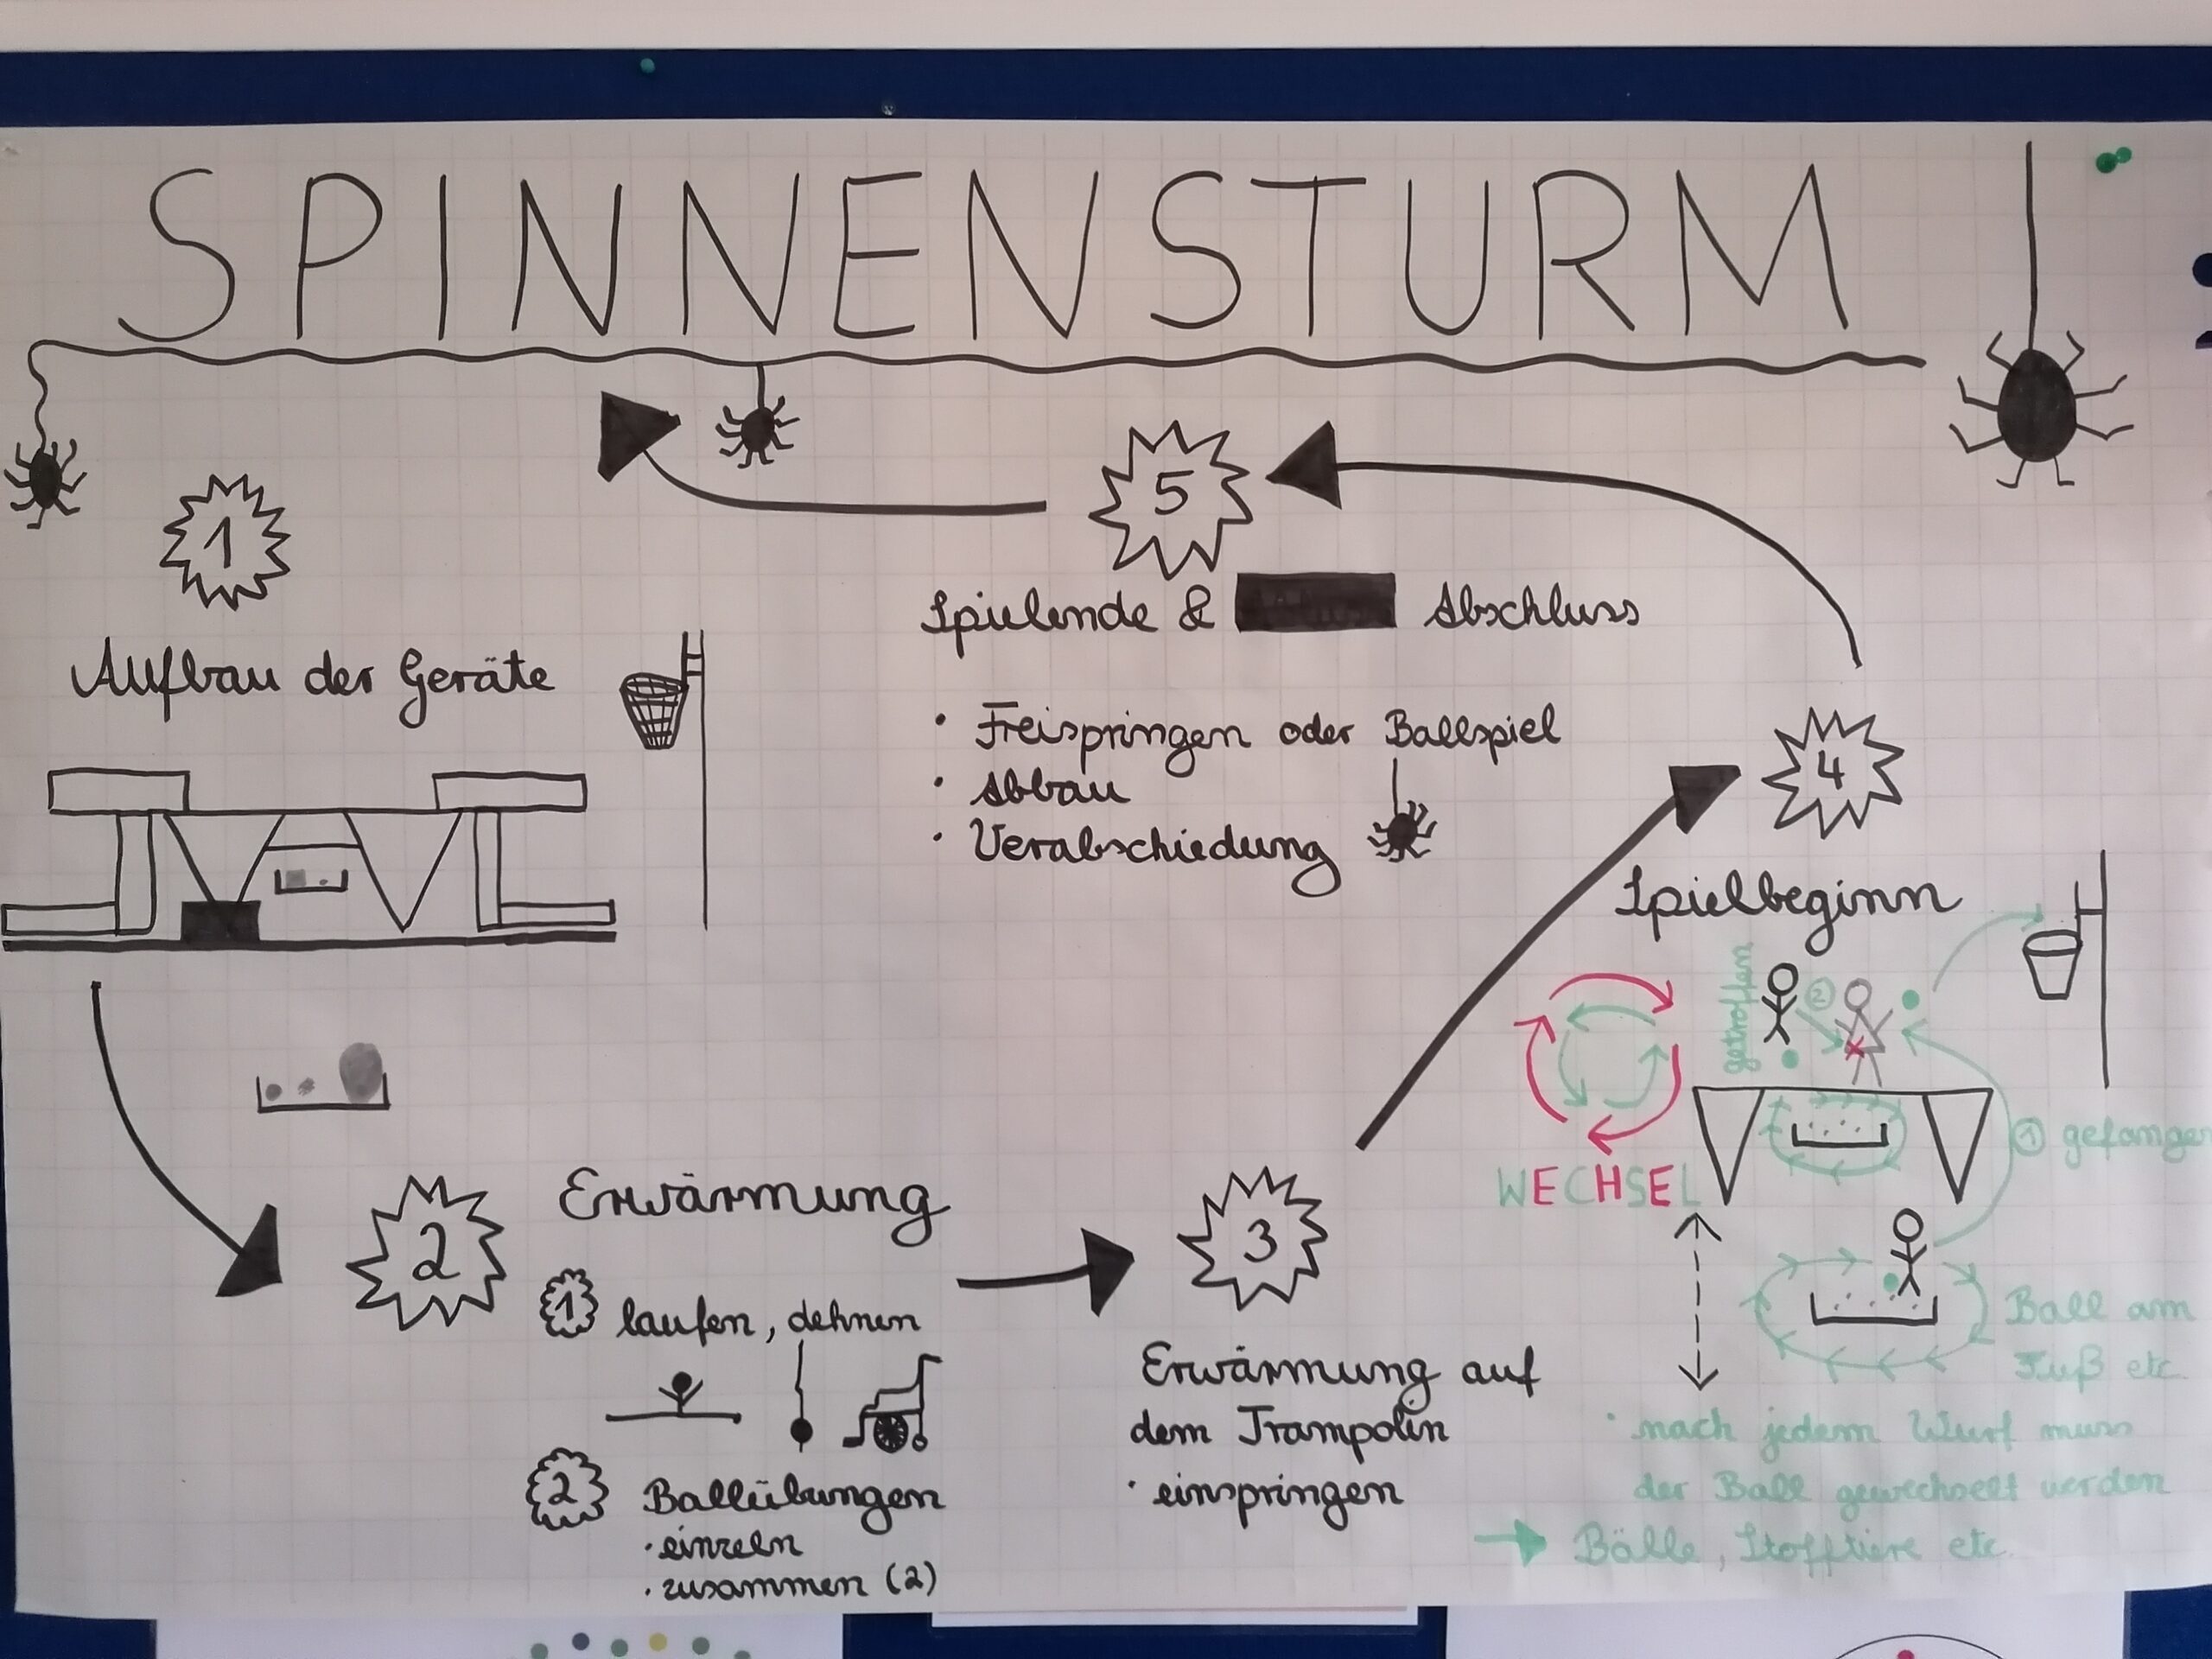 SPINNENSTURM
1
Aufbau der Geräte
2
Erwärmung
1 laufen, dehnen
2 Ballübungen
· einzeln
· zusammen (2)
3
Erwärmung auf
dem Trampolin
· einspringen
4
Spielbeginn
getroffen
2
1 gefangen
WECHSEL
Ball am
Fuß etc
· nach jedem Wurf muss
der Ball gewechselt werden
→ Bälle, Stofftiere etc.
5
Spielende & Abschluss
· Freispringen oder Ballspiel
· Abbau
· Verabschiedung